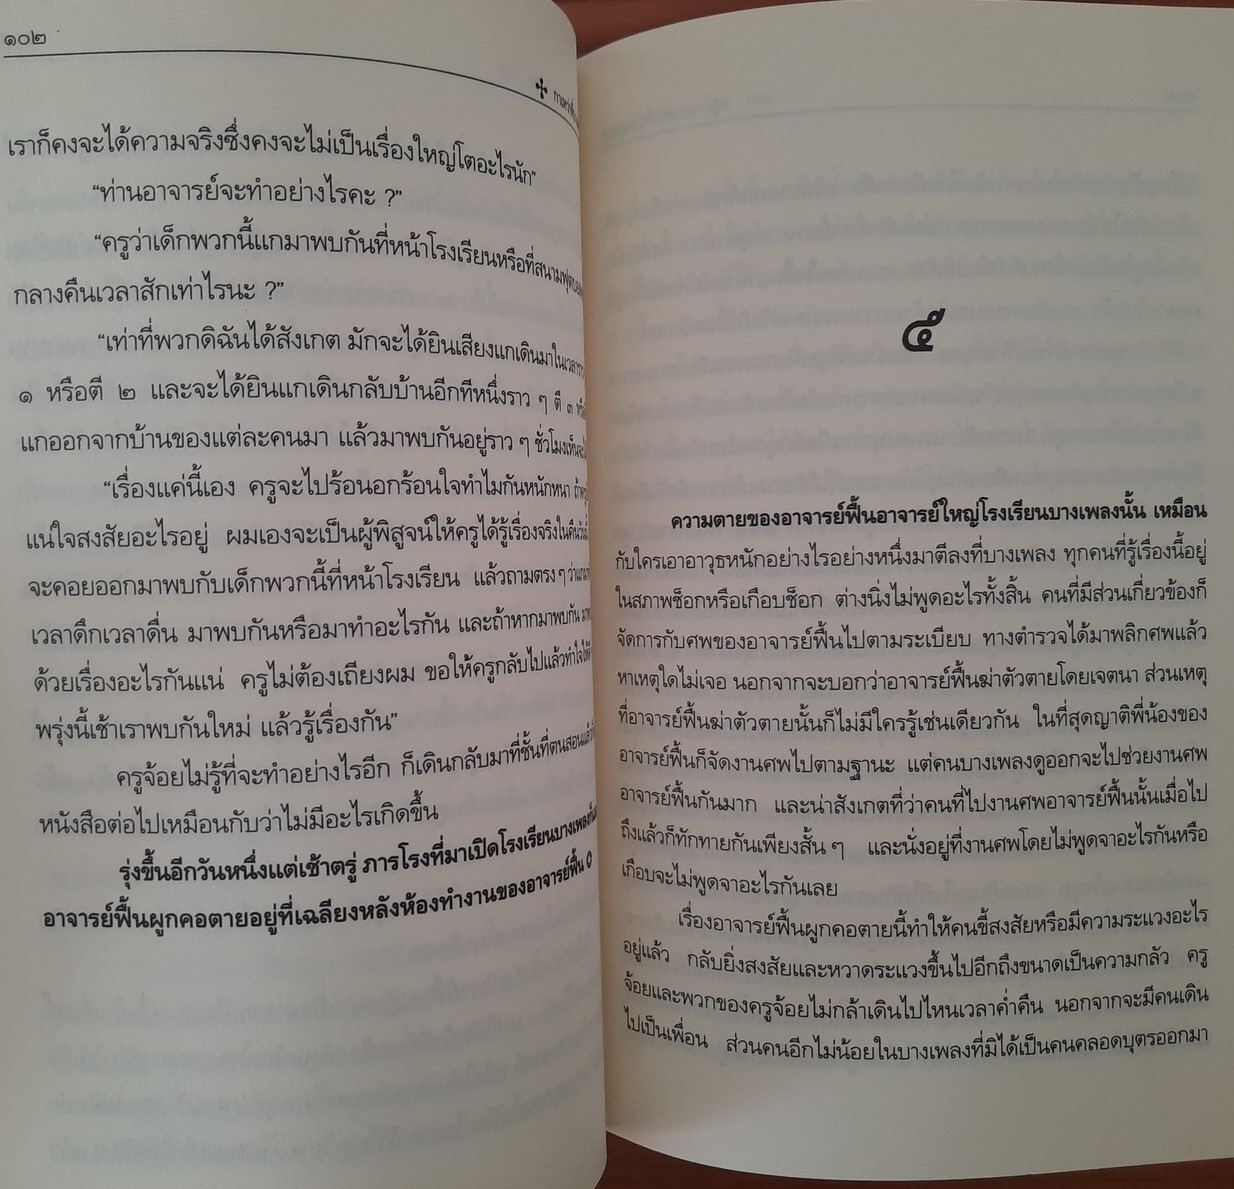 ๑๐๒
เราก็คงจะได้ความจริงซึ่งคงจะไม่เป็นเรื่องใหญ่โตอะไรนัก”
“ท่านอาจารย์จะทำอย่างไรคะ ?”
“ครูว่าเด็กพวกนี้แกมาพบกันที่หน้าโรงเรียนหรือที่สนามฟุตบอล
กลางคืนเวลาสักเท่าไรนะ ?”
“เท่าที่พวกดิฉันได้สังเกต มักจะได้ยินเสียงแกเดินมาในเวลา
๑ หรือตี ๒ และจะได้ยินแกเดินกลับบ้านอีกทีหนึ่งราว ๆ ตี ๓
แกออกจากบ้านของแต่ละคนมา แล้วมาพบกันอยู่ราว ๆ ชั่วโมงเห็นจะได้
“เรื่องแค่นี้เอง ครูจะไปร้อนอกร้อนใจทำไมกันหนักหนา
แน่ใจสงสัยอะไรอยู่ ผมเองจะเป็นผู้พิสูจน์ให้ครูได้รู้เรื่องจริงในคืนวันนี้
จะคอยออกมาพบกับเด็กพวกนี้ที่หน้าโรงเรียน แล้วถามตรง ๆ
เวลาดึกเวลาดื่น มาพบกันหรือมาทำอะไรกัน และถ้าหากมาพบกัน
ด้วยเรื่องอะไรกันแน่ ครูไม่ต้องเถียงผม ขอให้ครูกลับไปแล้วทำใจให้
พรุ่งนี้เช้าเราพบกันใหม่ แล้วรู้เรื่องกัน”
ครูจ้อยไม่รู้ที่จะทำอย่างไรอีก ก็เดินกลับมาที่ชั้นที่ตนสอนแล้ว
หนังสือต่อไปเหมือนกับว่าไม่มีอะไรเกิดขึ้น
รุ่งขึ้นอีกวันหนึ่งแต่เช้าตรู่ ภารโรงที่มาเปิดโรงเรียนบางเพลง
อาจารย์ฟื้นผูกคอตายอยู่ที่เฉลียงหลังห้องทำงานของอาจารย์ฟื้น
๕
ความตายของอาจารย์ฟื้นอาจารย์ใหญ่โรงเรียนบางเพลงนั้น เหมือน
กับใครเอาอาวุธหนักอย่างไรอย่างหนึ่งมาตีลงที่บางเพลง ทุกคนที่รู้เรื่องนี้อยู่
ในสภาพช็อกหรือเกือบช็อก ต่างนิ่งไม่พูดอะไรทั้งสิ้น คนที่มีส่วนเกี่ยวข้องก็
จัดการกับศพของอาจารย์ฟื้นไปตามระเบียบ ทางตำรวจได้มาพลิกศพแล้ว
หาเหตุใดไม่เจอ นอกจากจะบอกว่าอาจารย์ฟื้นฆ่าตัวตายโดยเจตนา ส่วนเหตุ
ที่อาจารย์ฟื้นฆ่าตัวตายนั้นก็ไม่มีใครรู้เช่นเดียวกัน ในที่สุดญาติพี่น้องของ
อาจารย์ฟื้นก็จัดงานศพไปตามฐานะ แต่คนบางเพลงดูออกจะไปช่วยงานศพ
อาจารย์ฟื้นกันมาก และน่าสังเกตที่ว่าคนที่ไปงานศพอาจารย์ฟื้นนั้นเมื่อไป
ถึงแล้วก็ทักทายกันเพียงสั้น ๆ และนั่งอยู่ที่งานศพโดยไม่พูดจาอะไรกันหรือ
เกือบจะไม่พูดจาอะไรกันเลย
เรื่องอาจารย์ฟื้นผูกคอตายนี้ทำให้คนขี้สงสัยหรือมีความระแวงอะไร
อยู่แล้ว กลับยิ่งสงสัยและหวาดระแวงขึ้นไปอีกถึงขนาดเป็นความกลัว ครู
จ้อยและพวกของครูจ้อยไม่กล้าเดินไปไหนเวลาค่ำคืน นอกจากจะมีคนเดิน
ไปเป็นเพื่อน ส่วนคนอีกไม่น้อยในบางเพลงที่มิได้เป็นคนคลอดบุตรออกมา